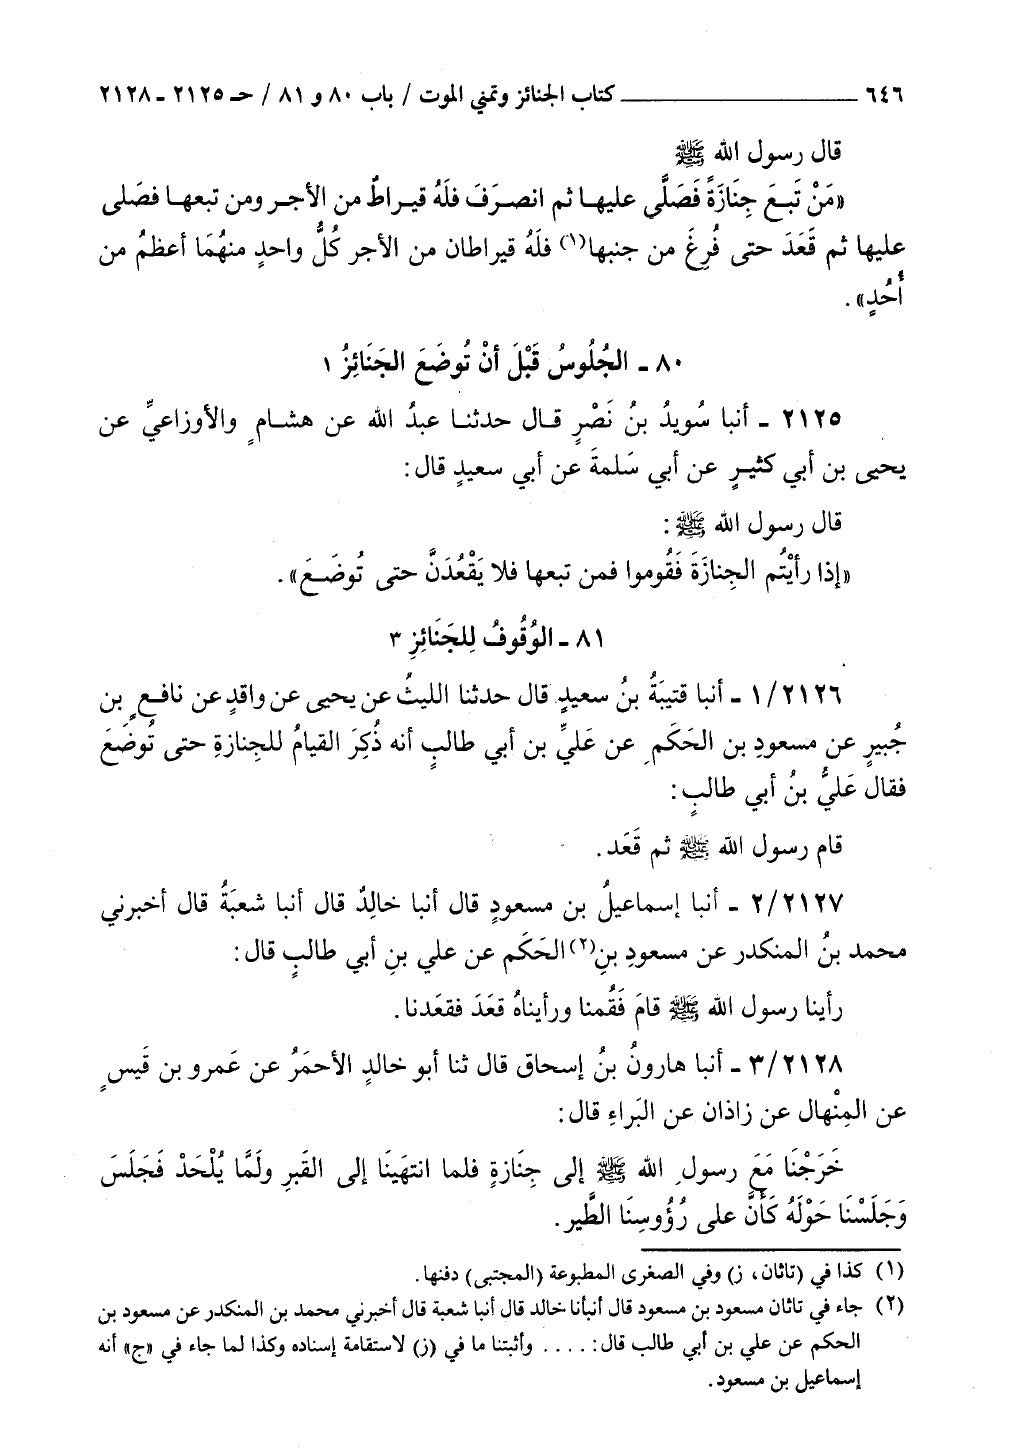 ٦٤٦ ــــــــــــــــ كتاب الجنائز وتمني الموت / باب ٨٠ و ٨١ / حـ ٢١٢٥ - ٢١٢٨
قال رسول الله ﷺ
«مَنْ تَبعَ جِنَازَةً فَصَلَّى عليهـا ثم انصـرَفَ فلَهُ قيـراطٌ من الأجـر ومن تبعهـا فصَلى
عليها ثم قَعَدَ حتى فُرِغَ من جنبها(١) فلَهُ قيراطان من الأجر كُلُّ واحدٍ منهُمَا أعظمُ من
أُحُدٍ».
٨٠ - الجُلُوسُ قَبْلَ أنْ تُوضَعَ الجَنَائِزُ ١
٢١٢٥ - أنبا سُويدُ بنُ نَصْرٍ قـال حدثنـا عبدُ الله عن هشـامٍ والأوزاعيِّ عن
يحيى بن أبي كثيـرٍ عن أبي سَلمةَ عن أبي سعيدٍ قال:
قال رسول الله ﷺ:
«إذا رأيْتُم الجِنازَةَ فَقُوموا فمن تبعها فلا يَقْعُدَنَّ حتى تُوضَـعَ».
٨١ - الوُقُوفُ لِلجَنَائِزِ ٣
١/٢١٢٦ - أنبا قتيبَةُ بنُ سعيدٍ قال حدثنا الليثُ عن يحيى عن واقدٍ عن نافعٍ بن
جُبيرٍ عن مسعودِ بن الحَكَمِ عن عَليِّ بن أبي طالبٍ أنه ذُكِرَ القيامُ للجِنازةِ حتى تُوضَعَ
فقال عَليُّ بنُ أبي طالبٍ:
قام رسول الله ﷺ ثم قَعَد.
٢/٢١٢٧ - أنبا إسماعيلُ بن مسعودٍ قال أنبا خالِدٌ قال أنبا شعبَةُ قال أخبرني
محمد بنُ المنكدر عن مسعودِ بنِ(٢) الحَكَم عن علي بنِ أبي طالبٍ قال:
رأينا رسول الله ﷺ قامَ فَقُمنا ورأيناهُ قعَدَ فقعَدنا.
٣/٢١٢٨ - أنبا هارونُ بنُ إسحاق قال ثنا أبو خالدٍ الأحمَرُ عن عَمرو بن قَيسٍ
عن المِنْهال عن زاذان عن البَراءِ قال:
خَرَجْنَا مَعَ رسولِ الله ﷺ إلى جِنَازةٍ فلما انتهَينَا إلى القَبرِ ولَمَّا يُلْحَدْ فَجَلَسَ
وَجَلَسْنَا حَوْلَهُ كَأَنَّ على رُؤُوسِنَا الطَّير.
(١) كذا في (تاثان، ز) وفي الصغرى المطبوعة (المجتبى) دفنها.
(٢) جاء في تاثان مسعود بن مسعود قال أنبأنا خالد قال أنبا شعبة قال أخبرني محمد بن المنكدر عن مسعود بن
الحكم عن علي بن أبي طالب قال: .... وأثبتنا ما في (ز) لاستقامة إسناده وكذا لما جاء في «ج» أنه
إسماعيل بن مسعود.